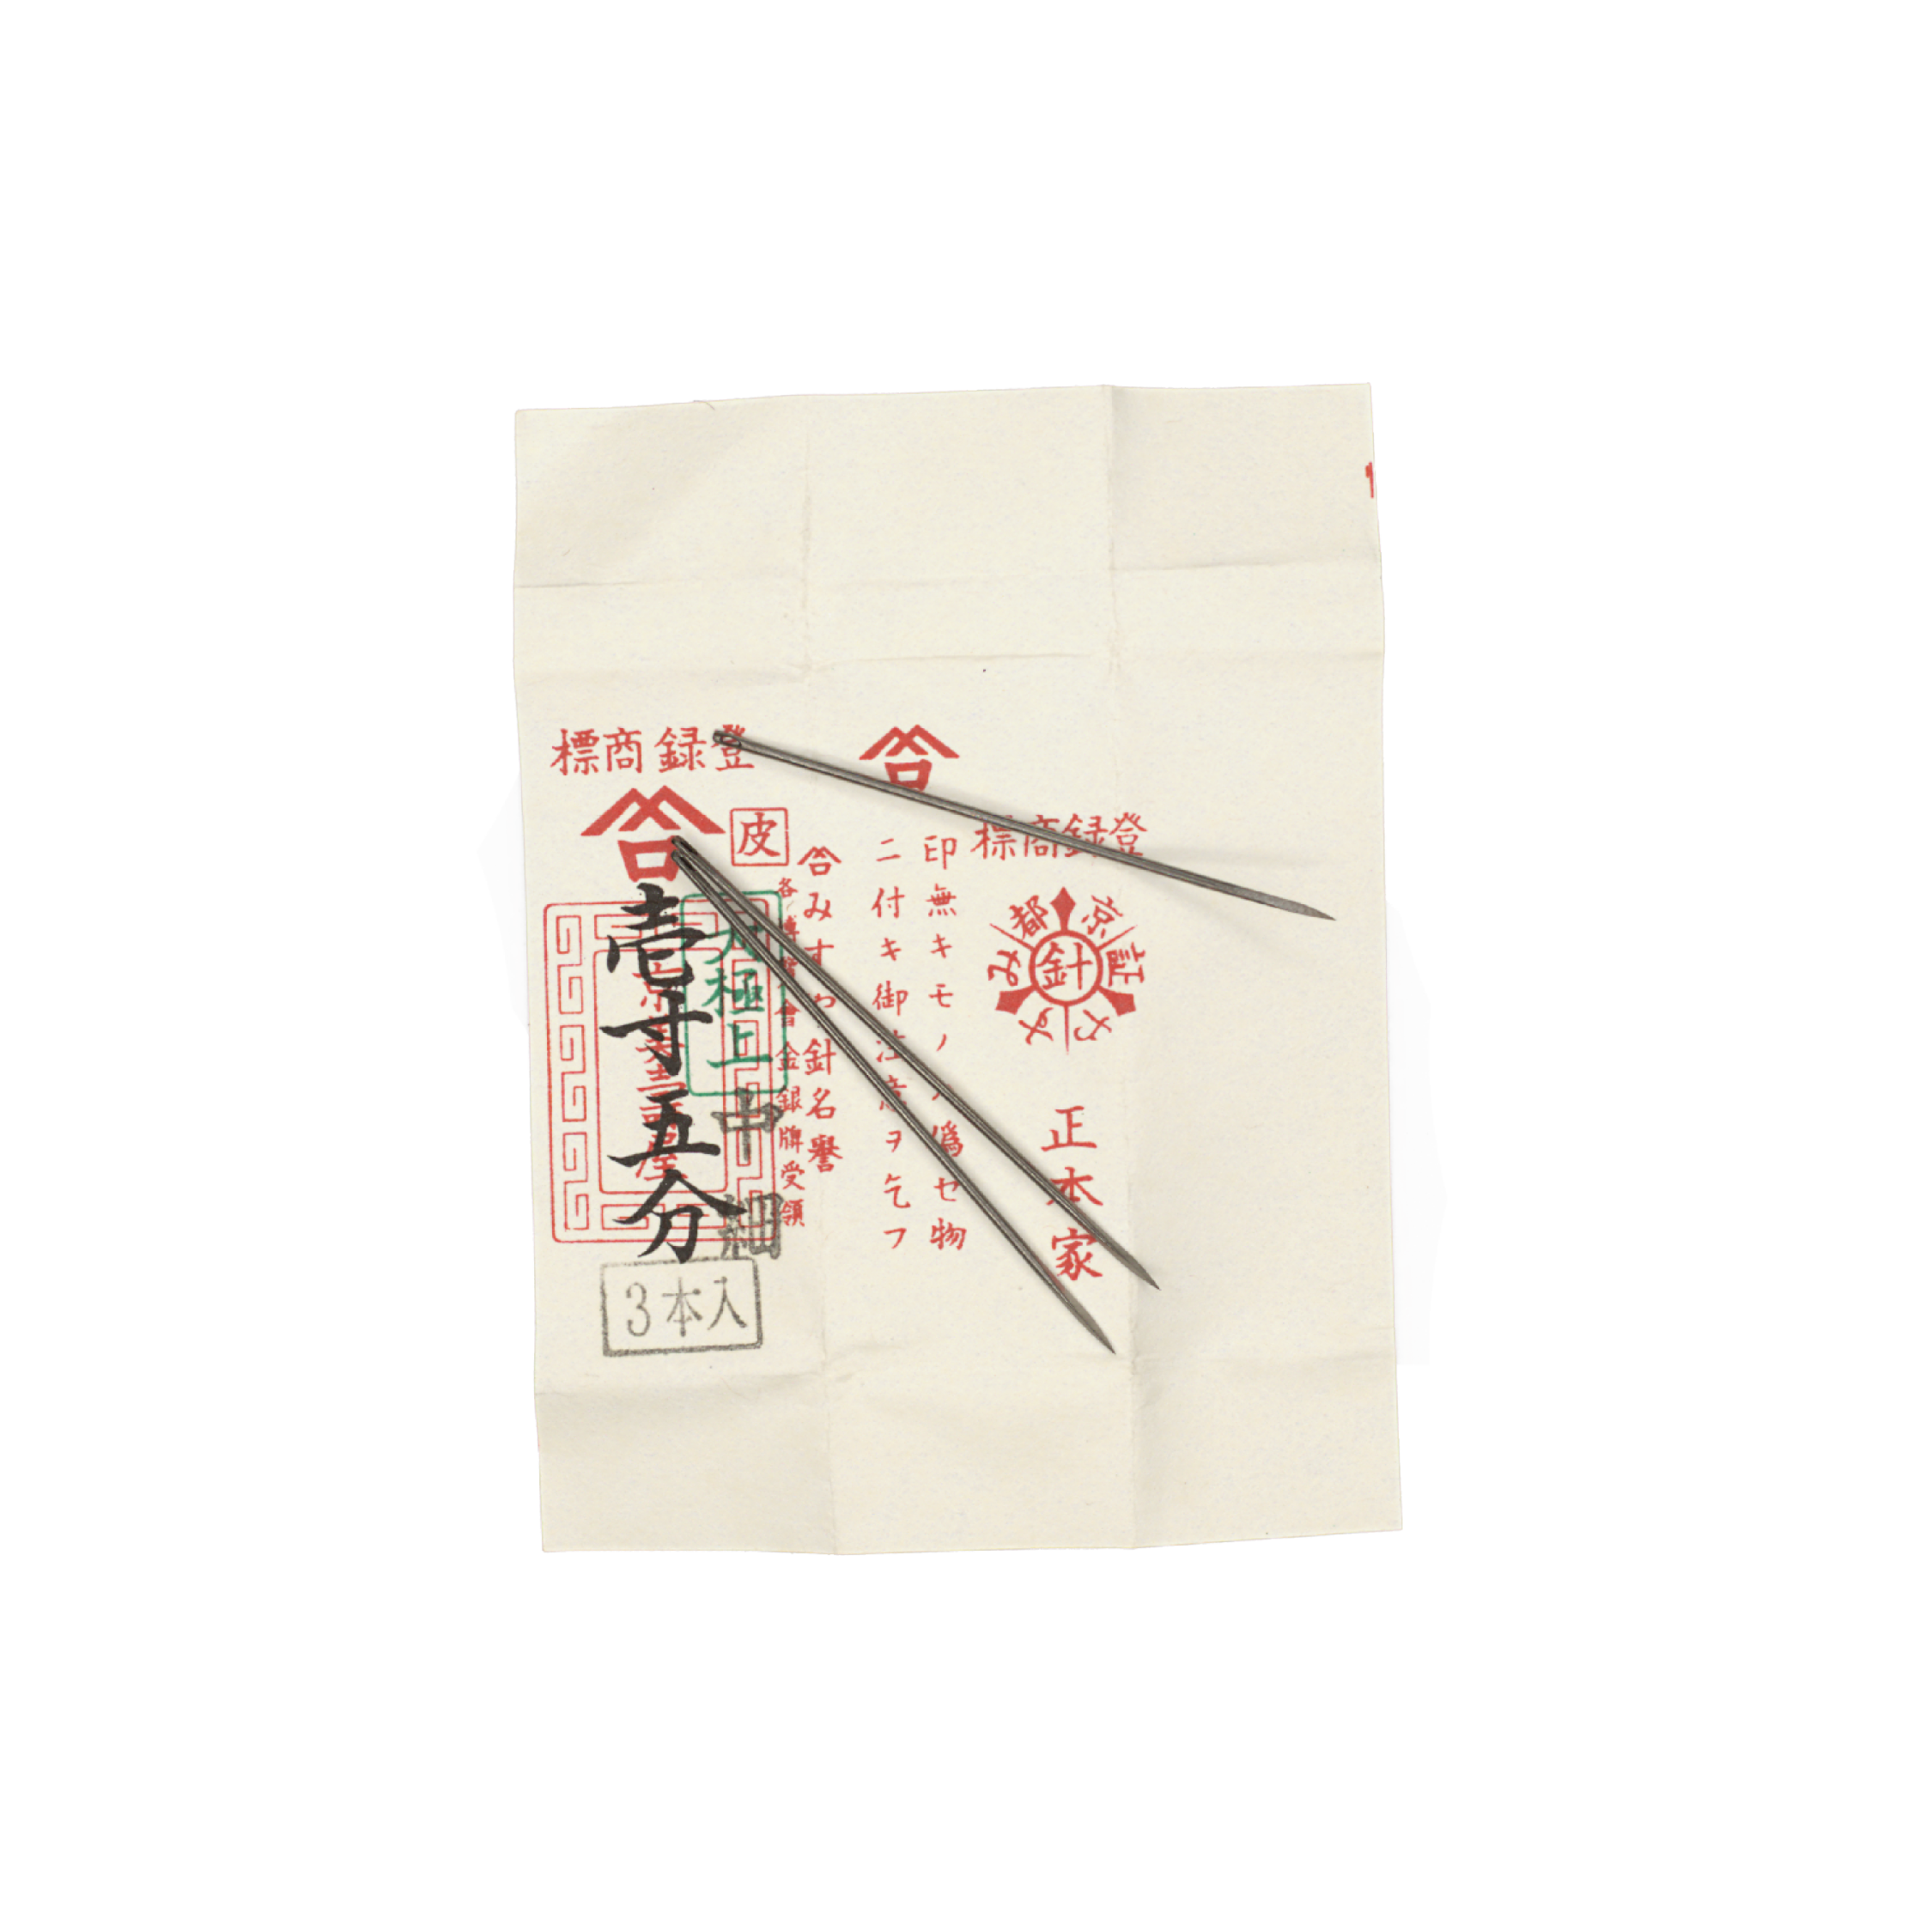 登録商標
正本家
京都
針
証
みすや
登録商標
印無キモノハ偽セ物
ニ付キ御注意ヲ乞フ
みすや針名譽
各博覽會金銀牌受領
皮
大極上
中細
登録商標
壱寸五分
3本入